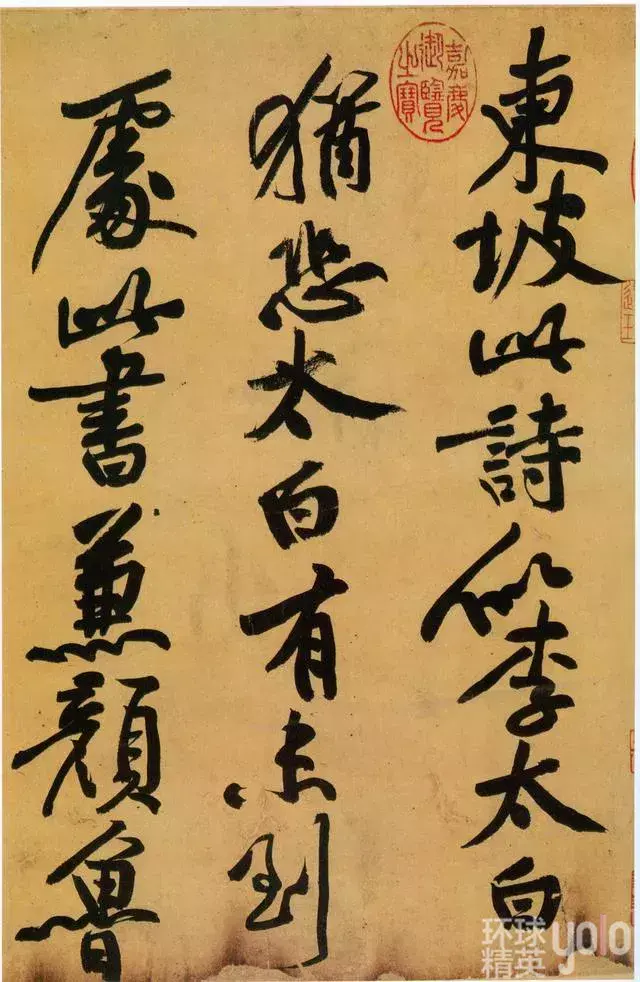 東坡此詩似李太白
猶恐太白有未到
處此書兼顏魯
嘉慶
御覽
之寶
环球
精英
yolo